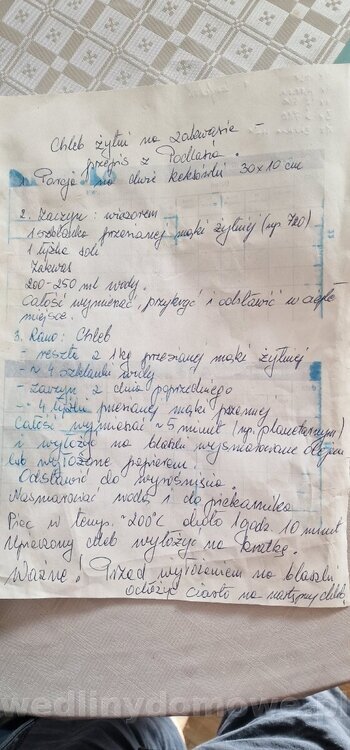 Chleb żytni na zakwasie -
przepis z Podlasia.
1. Porcja na dwie keksówki 30x10 cm
2. Zaczyn: wieczorem
1 szklanka przesianej mąki żytniej (np. 720)
1 łyżka soli
Zakwas
200-250 ml wody.
Całość wymieszać, przykryć i odstawić w ciepłe
miejsce.
3. Rano: Chleb
- reszta z 1kg przesianej mąki żytniej
- ~ 4 szklanki wody
- zaczyn z dnia poprzedniego
- 4 łyżki przesianej mąki pszennej
Całość wymieszać ~5 minut (np. planetarnym)
i wyłożyć na blaszki wysmarowane olejem
lub wyłożone papierem.
Odstawić do wyrośnięcia.
Nasmarować wodą i do piekarnika
Piec w temp. ~200°C około 1 godz. 10 minut
Upieczony chleb wyłożyć na kratkę.
Ważne! Przed wyłożeniem na blaszki
odłożyć ciasto na następny chleb
wedlinydomowe.pl